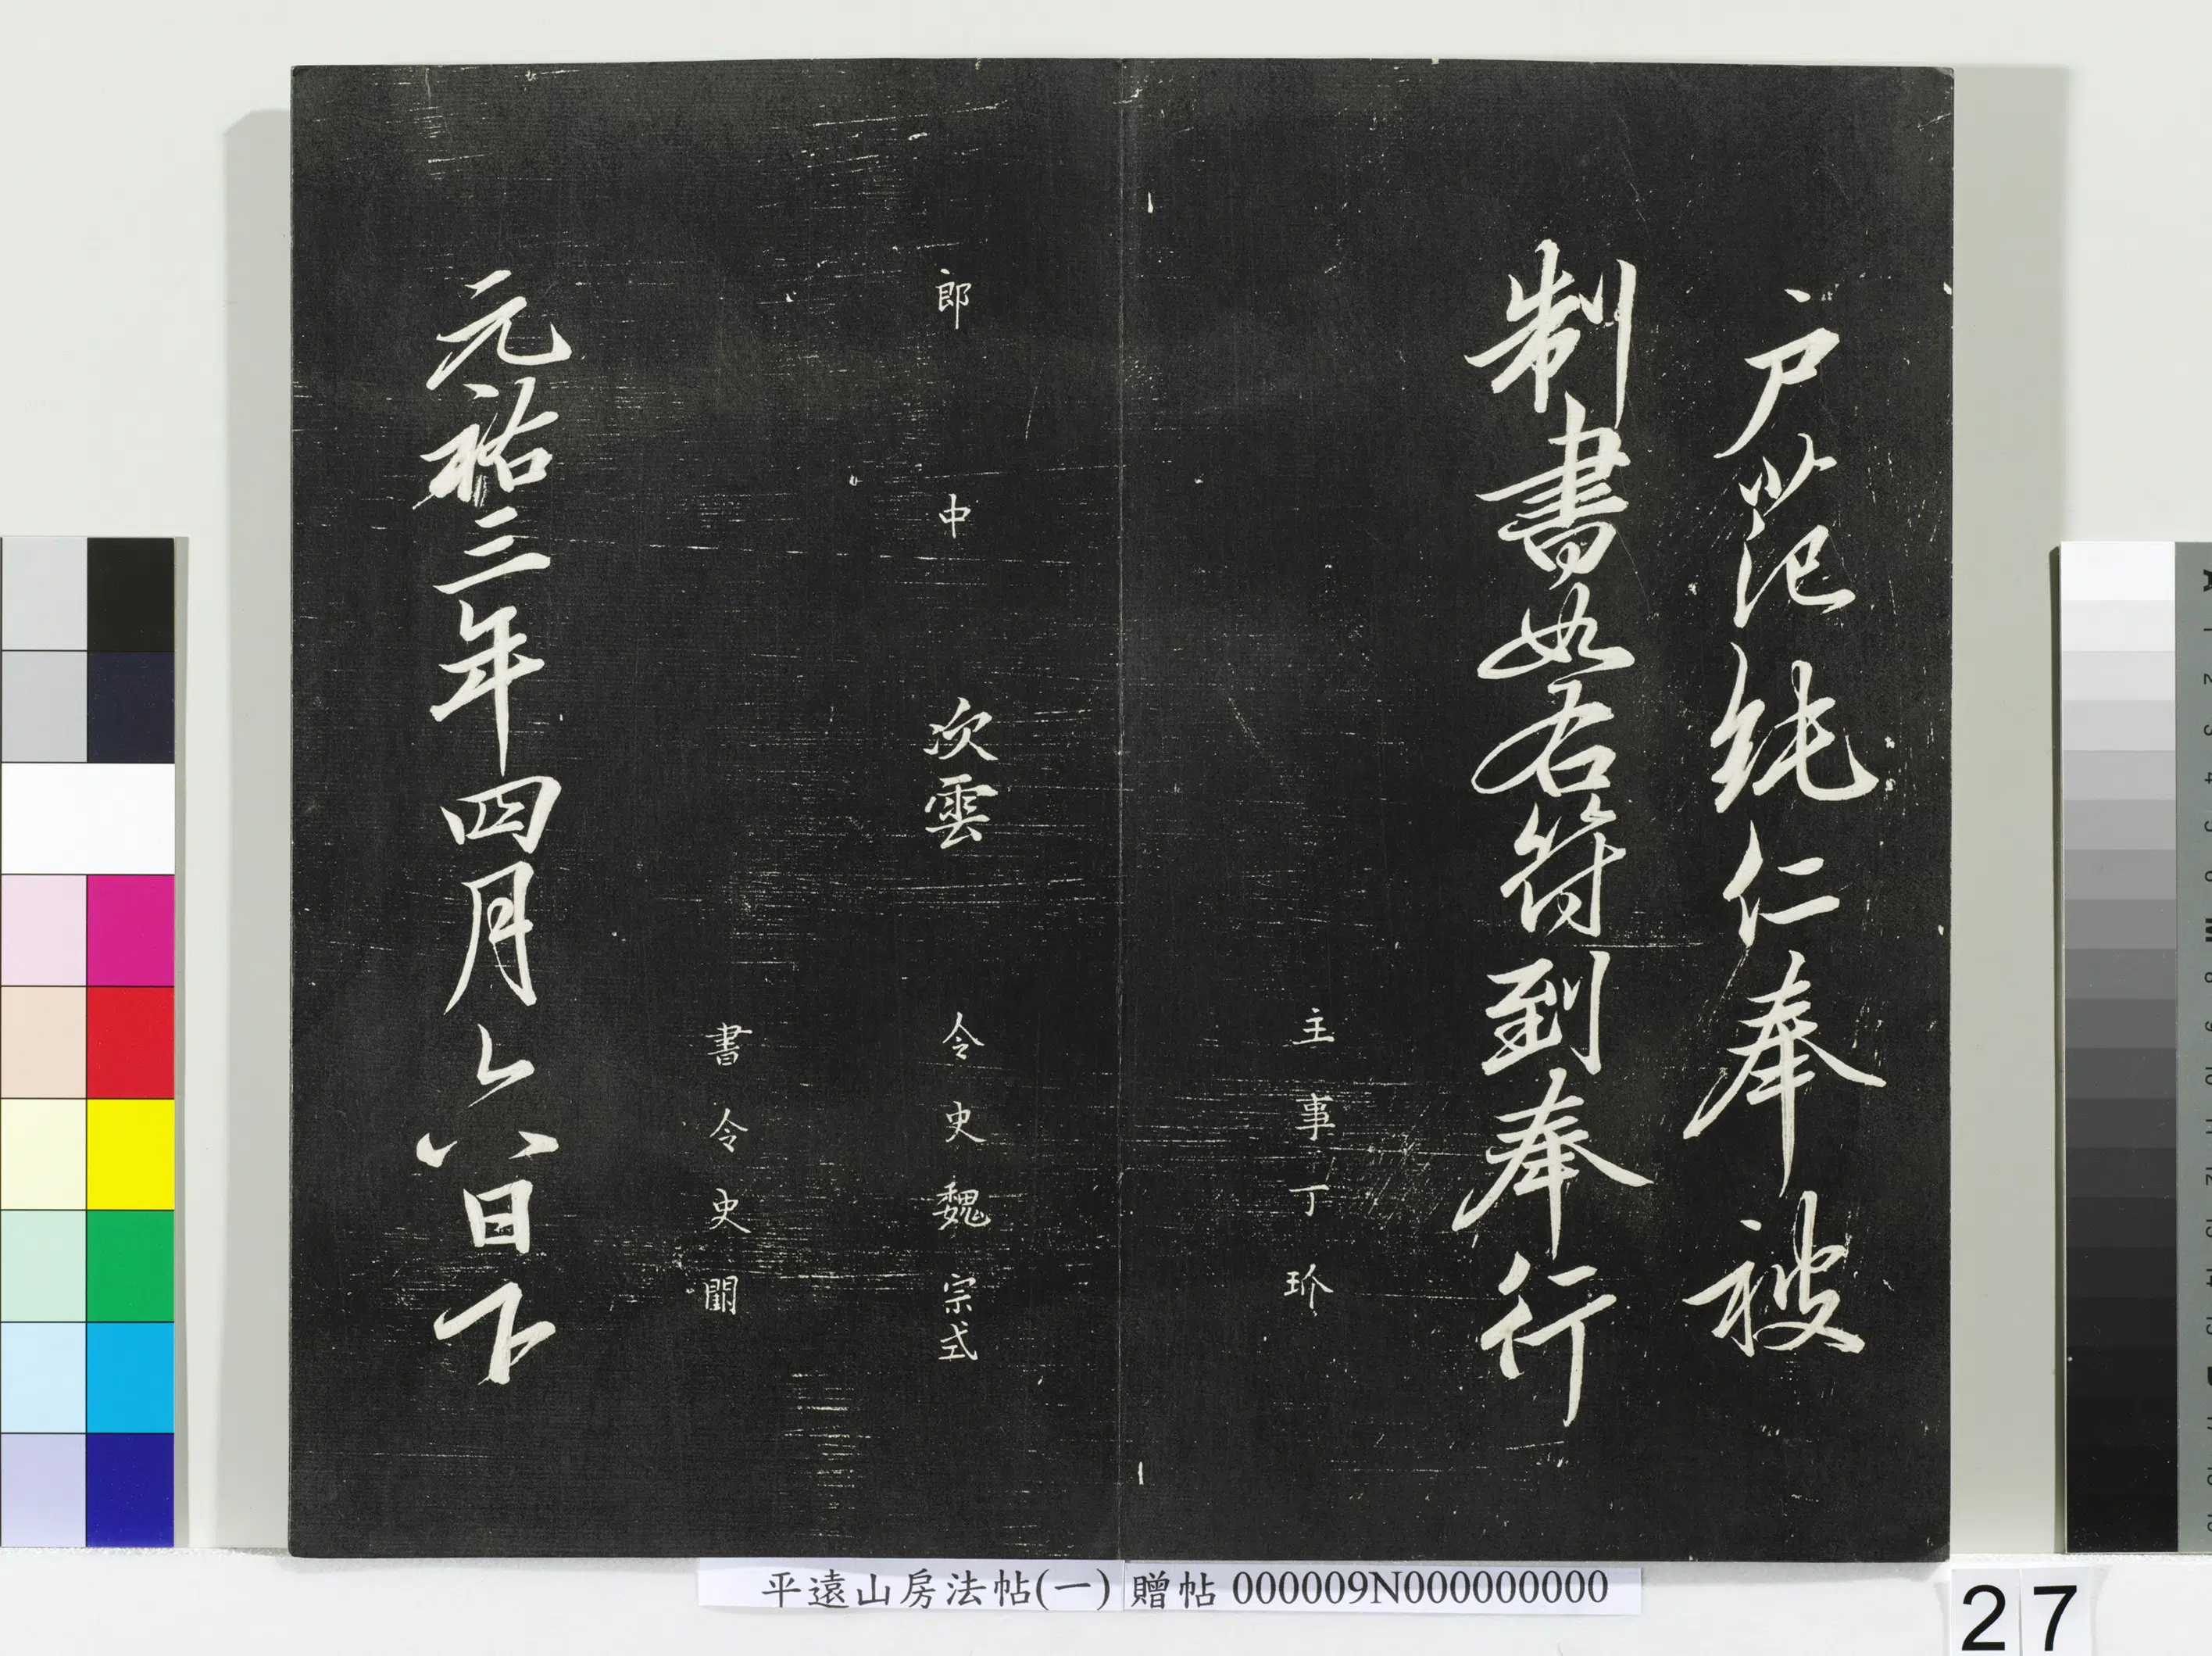 户范純仁奉被
制書如右符到奉行
主事丁玠
郎中 次雲 令史魏宗式
書令史
元祐三年四月六日下
平遠山房法帖(一) 贈帖 000009N000000000
27